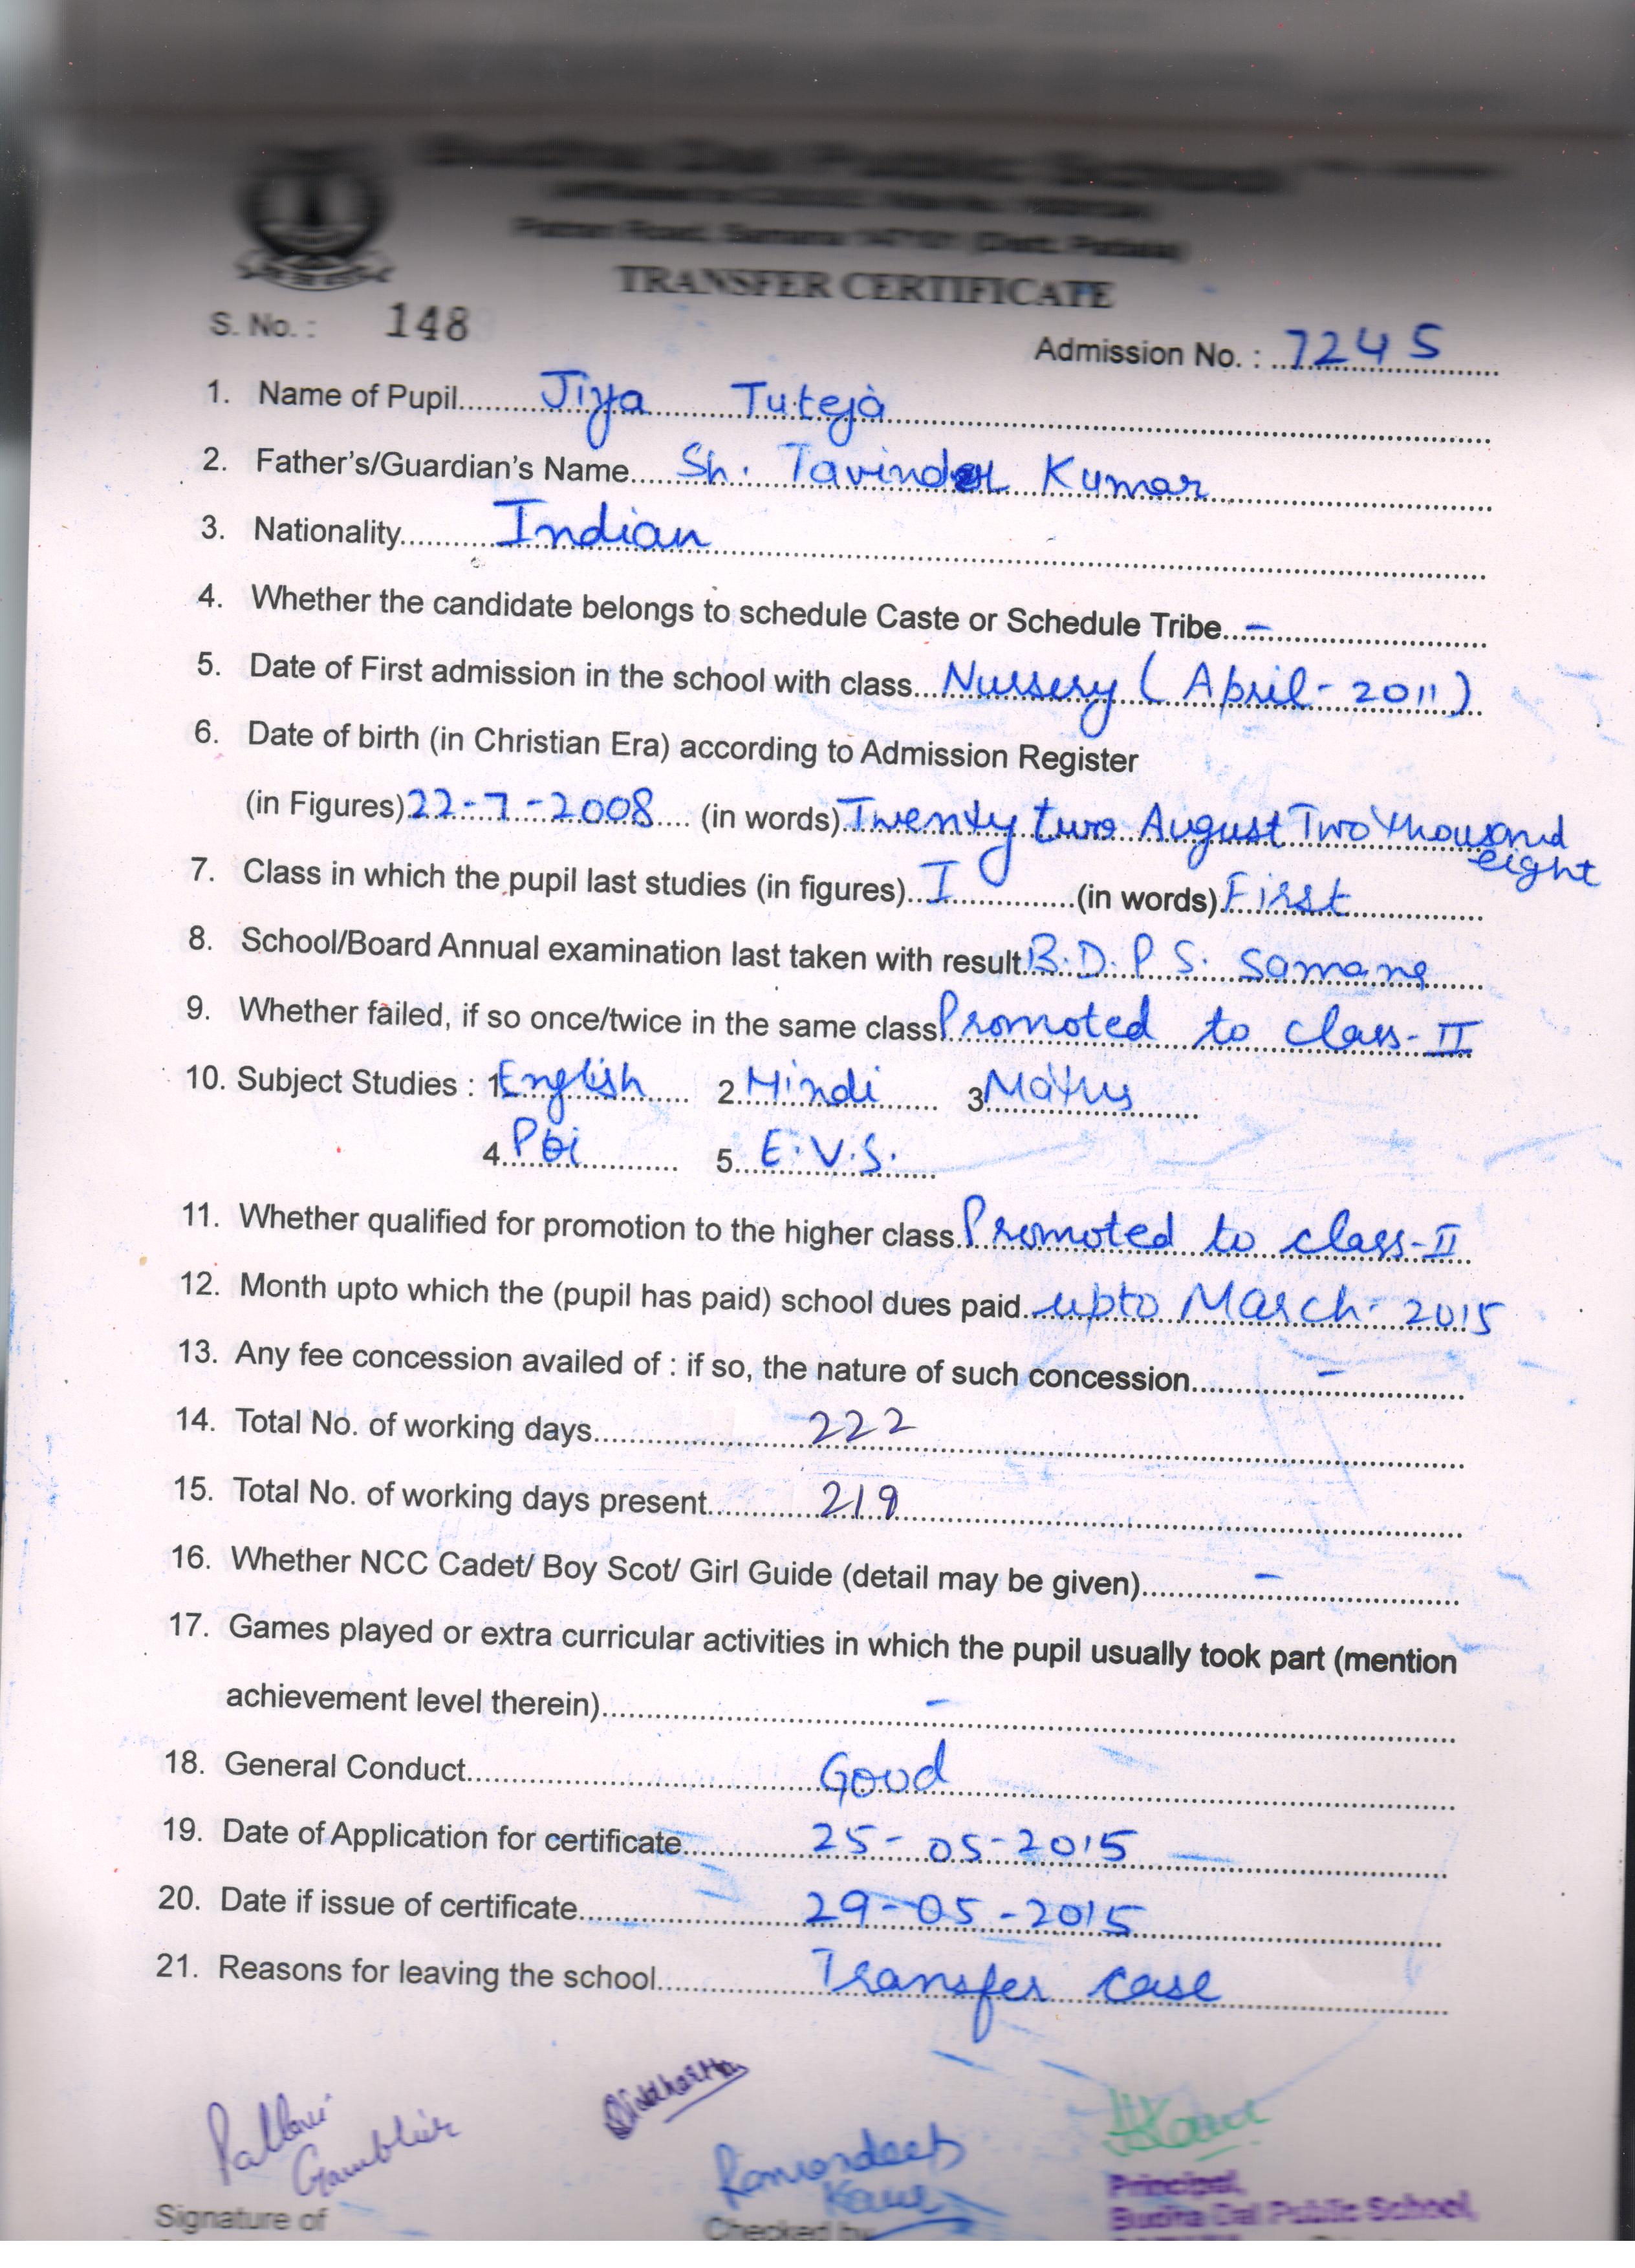 Budha Dal Public School
Patran Road, Samana 147101 (Distt. Patiala)
TRANSFER CERTIFICATE
S. No. : 148
Admission No. : 7245
1. Name of Pupil Jiya Tuteja
2. Father's/Guardian's Name Sh. Tavinder Kumar
3. Nationality Indian
4. Whether the candidate belongs to schedule Caste or Schedule Tribe -
5. Date of First admission in the school with class Nursery (April-2011)
6. Date of birth (in Christian Era) according to Admission Register
(in Figures) 22-7-2008 (in words) Twenty two August Two thousand
eight
7. Class in which the pupil last studies (in figures) I (in words) First
8. School/Board Annual examination last taken with result B.D.P.S. Samana
9. Whether failed, if so once/twice in the same class Promoted to class-II
10. Subject Studies : 1 English 2 Hindi 3 Maths
4 Pbi 5 E.V.S.
11. Whether qualified for promotion to the higher class Promoted to class-II
12. Month upto which the (pupil has paid) school dues paid upto March-2015
13. Any fee concession availed of : if so, the nature of such concession -
14. Total No. of working days 222
15. Total No. of working days present 219
16. Whether NCC Cadet/ Boy Scot/ Girl Guide (detail may be given) -
17. Games played or extra curricular activities in which the pupil usually took part (mention
achievement level therein) -
18. General Conduct Good
19. Date of Application for certificate 25-05-2015
20. Date if issue of certificate 29-05-2015
21. Reasons for leaving the school Transfer case
Pallavi
Siddhartha
Ramandeep
Kaur
Principal,
Budha Dal Public School,
Signature of
Checked by